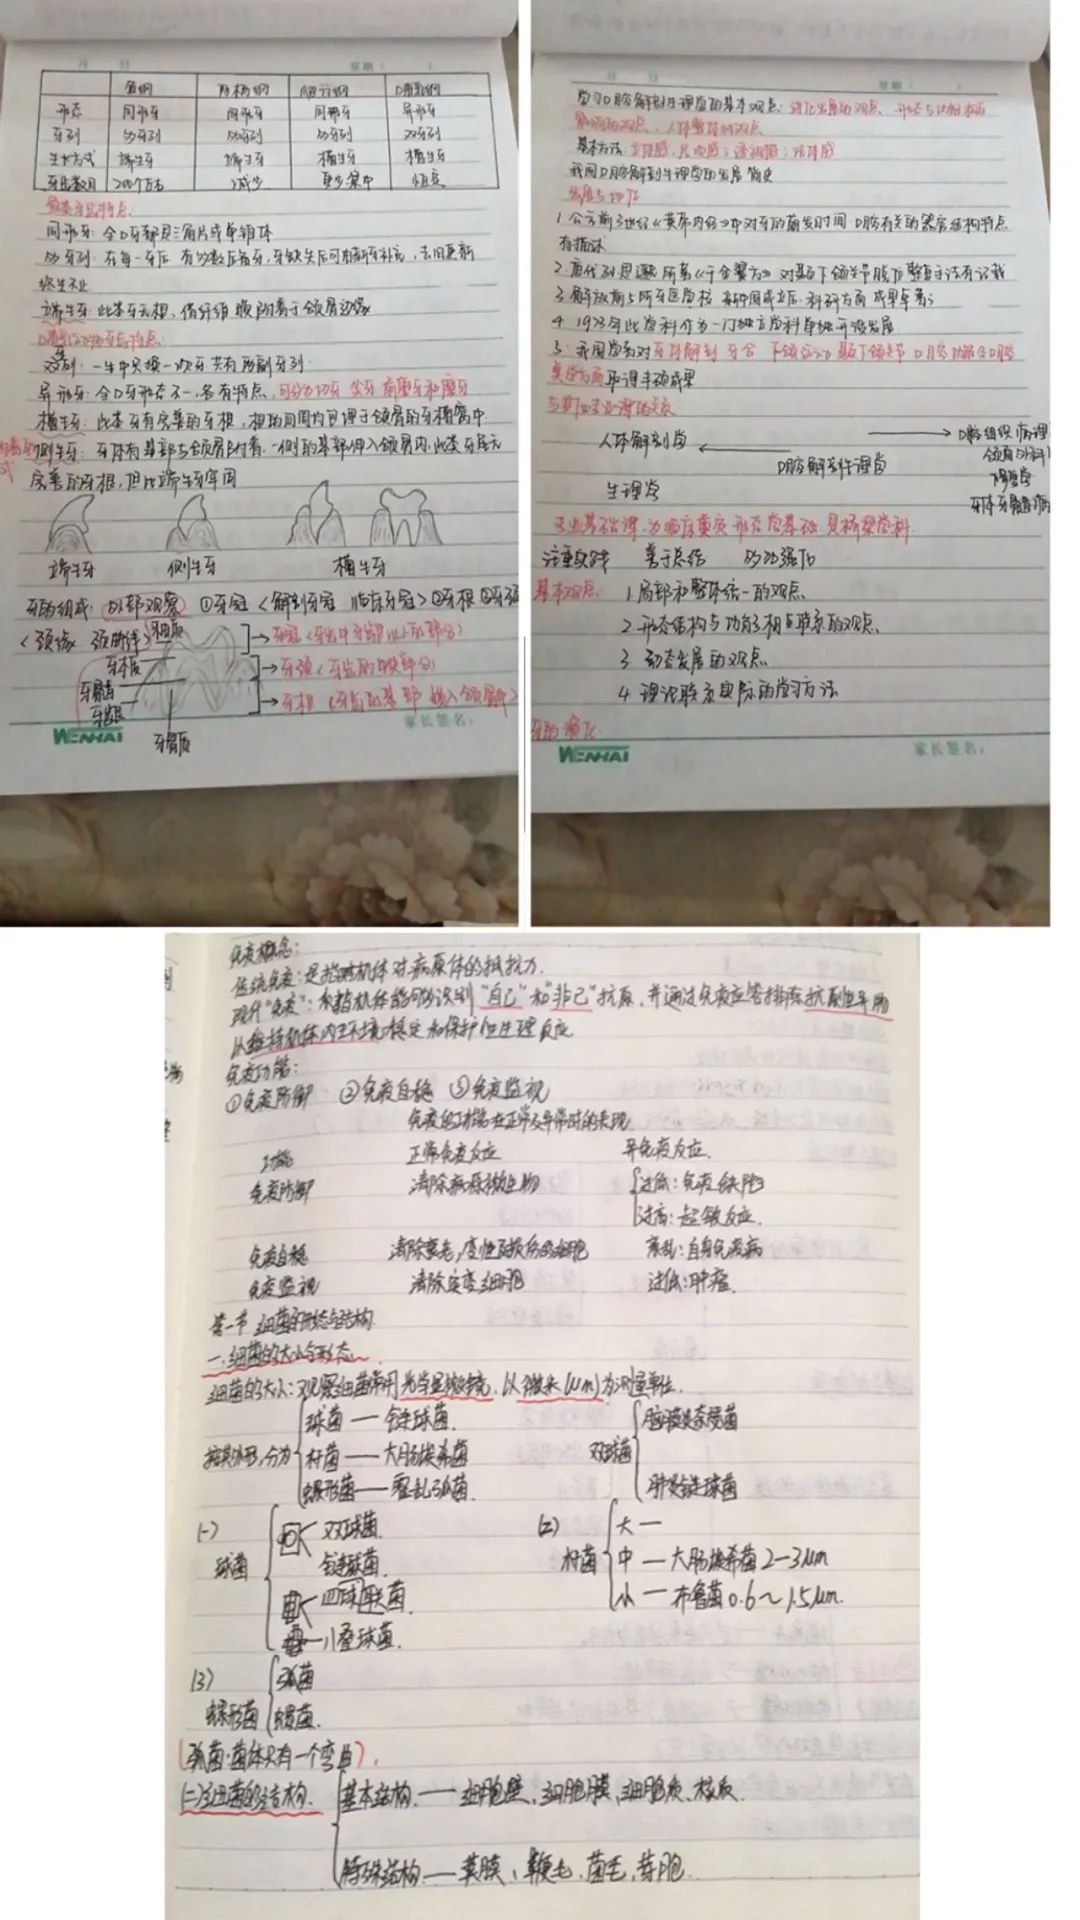 鱼纲 两栖纲 爬行纲 哺乳纲
形态 同形牙 同形牙 同形牙 异形牙
牙列 多牙列 多牙列 多牙列 双牙列
生长方式 端生牙 端生牙 槽生牙 槽生牙
牙齿数目 200个左右 减少 更少集中 恒定
同形牙: 全口牙都是三角片或单锥体
多牙列: 在每一牙后 有多数后备牙,牙缺失后可由新牙补充,去旧更新
终生不止
端生牙: 此类牙无根,借纤维膜附着于颌骨边缘
双牙列: 一生中只换一次牙共有两副牙列
异形牙: 全口牙形态不一,各有特点,可分为切牙 尖牙 前磨牙和磨牙
槽生牙: 此类牙有完善的牙根,根的周围均包埋于颌骨的牙槽窝中
侧生牙: 牙体有基部与颌骨附着,一侧的基部伸入颌骨内,此类牙虽无
完善的牙根,但比端生牙牢固
端生牙 侧生牙 槽牙
牙的组成: 外部观察 ①牙冠 <解剖牙冠 临床牙冠> ②牙根 ③牙颈
<颈缘 颈曲线>
牙釉质
牙本质
牙骨质
→牙颈<牙齿的缺部分>
WENHAI
家长签名:
星期( )
学习口腔解剖生理学的基本观点: 进化发展的观点、形态与功能相互
影响的观点、人体整体的观点
基本方法:
我国口腔解剖生理学的发展简史
1. 公元前3世纪《黄帝内经》中对牙的萌发时间 口腔有关的器官结构特点
有描述
2. 唐代孙思邈所著《千金翼方》对颞下颌关节脱位整复手法有记载
4. 1973年此学科作为一门独立学科单独开设发展
取得丰硕成果
人体解剖学
口腔解剖生理学
生理学
口腔组织病理
专业基础课,为临床奠定形态学基础 是桥梁学科.
注重实践 善于总结
基本观点: 1. 局部和整体统一的观点
2. 形态结构与功能相互联系的观点
3. 动态发展的观点
4. 理论联系实际的学习方法
牙的演化
WENHAI
家长签名:
免疫概念:
传统免疫: 是指机体对病原体的抵抗力.
现代"免疫": 机体能够识别"自己"和"非己"抗原,并通过免疫应答排除抗原性异物
以维持机体内环境稳定和保护性生理反应
免疫功能:
①免疫防御 ②免疫自稳 ③免疫监视
免疫的功能在正常及异常时的表现
功能 正常免疫反应 异免疫反应.
免疫防御 清除病原微生物 过低: 免疫缺陷
过高: 超敏反应.
免疫自稳 清除衰老,变性及损伤的细胞 紊乱: 自身免疫病
免疫监视 清除突变细胞 过低: 肿瘤.
第一节 细菌的形态与结构
一.细菌的大小与形态.
细菌的大小: 观察细菌常用光学显微镜,以微米(μm)为测量单位.
球菌——链球菌.
按其外形,分为 杆菌——大肠埃希菌
螺形菌——霍乱弧菌.
双球菌 脑膜炎奈瑟菌
肺炎链球菌
(一) 球菌 双球菌.
链球菌.
四联球菌.
八叠球菌.
(2) 杆菌 大—
中—大肠埃希菌 2-3μm
小—布鲁菌 0.6~1.5μm.
(3) 螺形菌 弧菌
螺菌.
(弧菌: 菌体只有一个弯曲).
(二)细菌的结构. 基本结构.——细胞壁、细胞膜、细胞质、核质.
特殊结构——荚膜、鞭毛、菌毛、芽孢.